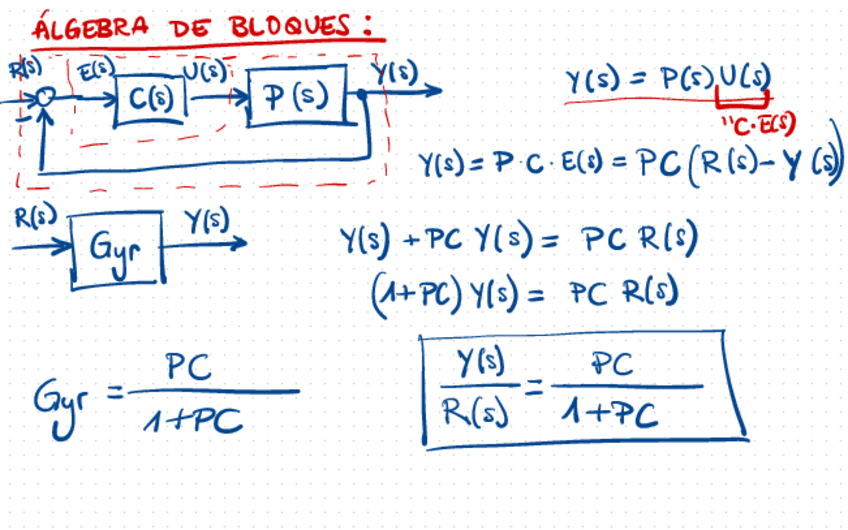 ÁLGEBRA DE BLOQUES:
R(s) E(s) U(s) Y(s)
C(s) P(s)
-
Y(s) = P(s) U(s)
"C·E(s)
Y(s) = P·C·E(s) = PC(R(s) - Y(s))
R(s) Y(s)
Gyr
Y(s) + PC Y(s) = PC R(s)
(1+PC) Y(s) = PC R(s)
Gyr = PC / 1+PC
Y(s) / R(s) = PC / 1+PC